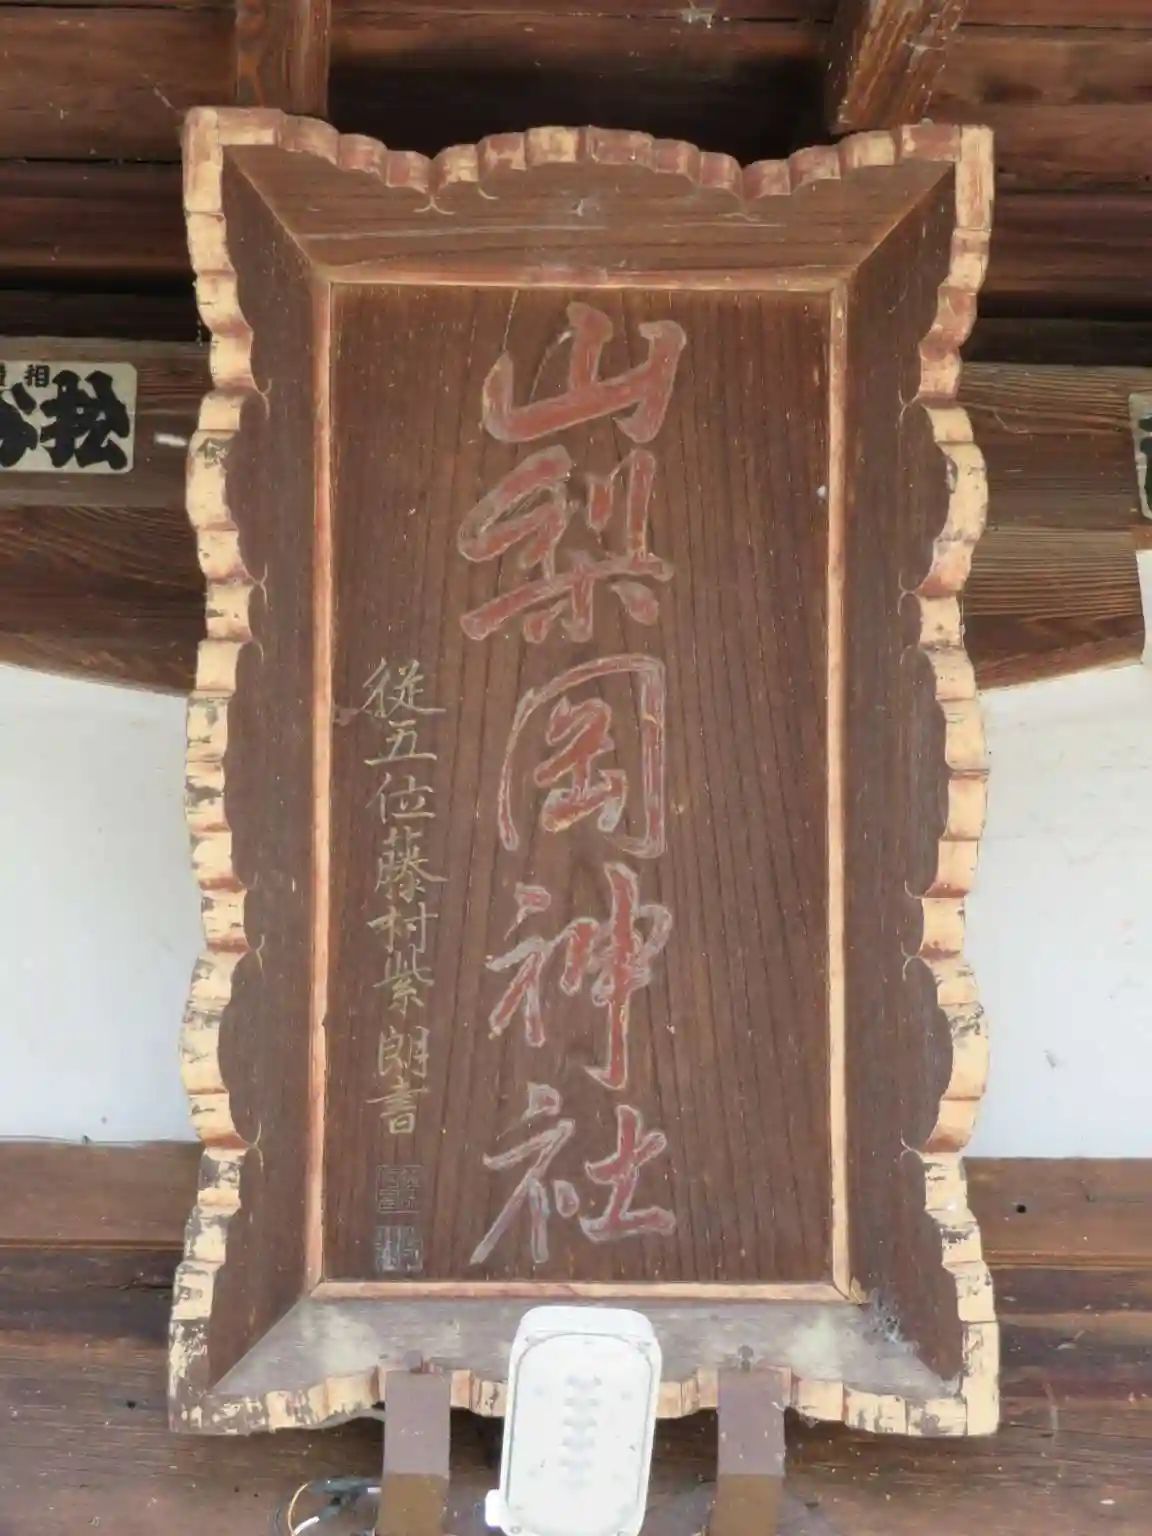 山梨岡神社
従五位藤村紫朗書
相
松